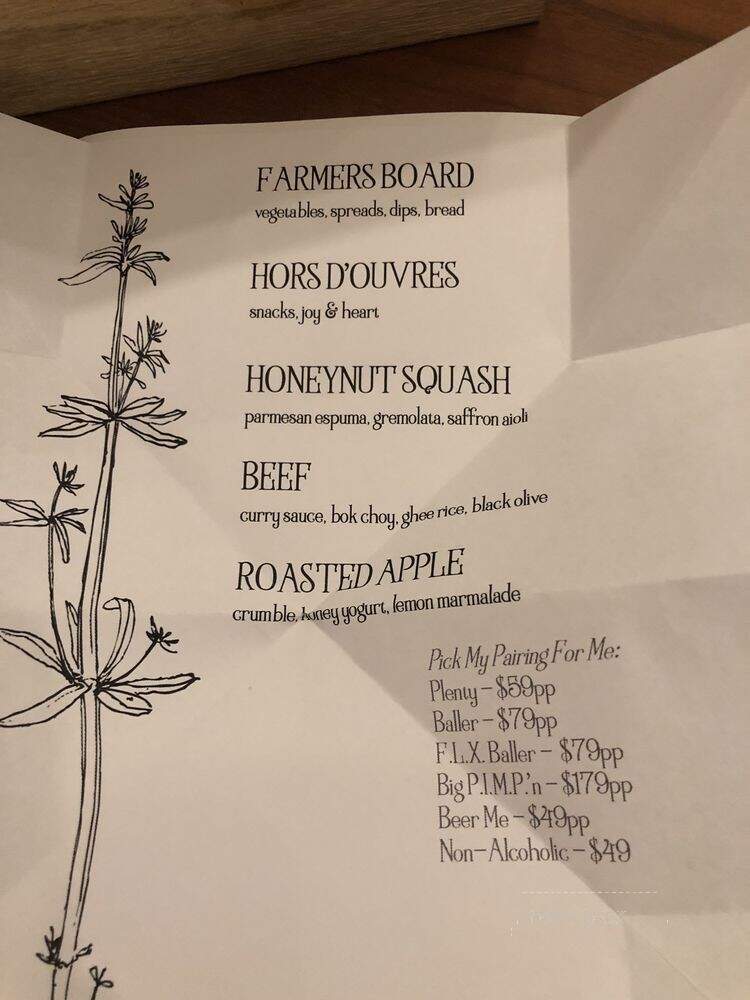 FARMERS BOARD
vegetables, spreads, dips, bread
HORS D'OUVRES
snacks, joy & heart
HONEYNUT SQUASH
parmesan espuma, gremolata, saffron aioli
BEEF
curry sauce, bok choy, ghee rice, black olive
ROASTED APPLE
crumble, honey yogurt, lemon marmalade
Pick My Pairing For Me:
Plenty – $59pp
Baller – $79pp
F.L.X. Baller – $79pp
Big P.I.M.P.'n – $179pp
Beer Me – $49pp
Non-Alcoholic – $49